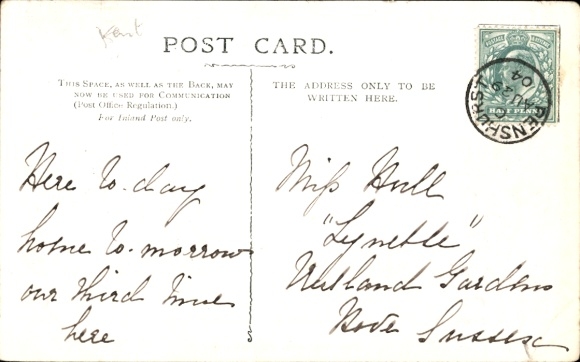 Kent
POST CARD.
THIS SPACE, AS WELL AS THE BACK, MAY
NOW BE USED FOR COMMUNICATION
(Post Office Regulation.)
For Inland Post only.
THE ADDRESS ONLY TO BE
WRITTEN HERE.
POSTAGE REVENUE
HALF PENNY
PENSHURST
AU
04
Here to-day
home to-morrow
our third time
here
Miss Hull
"Lynette"
Rutland Gardens
Hove Sussex